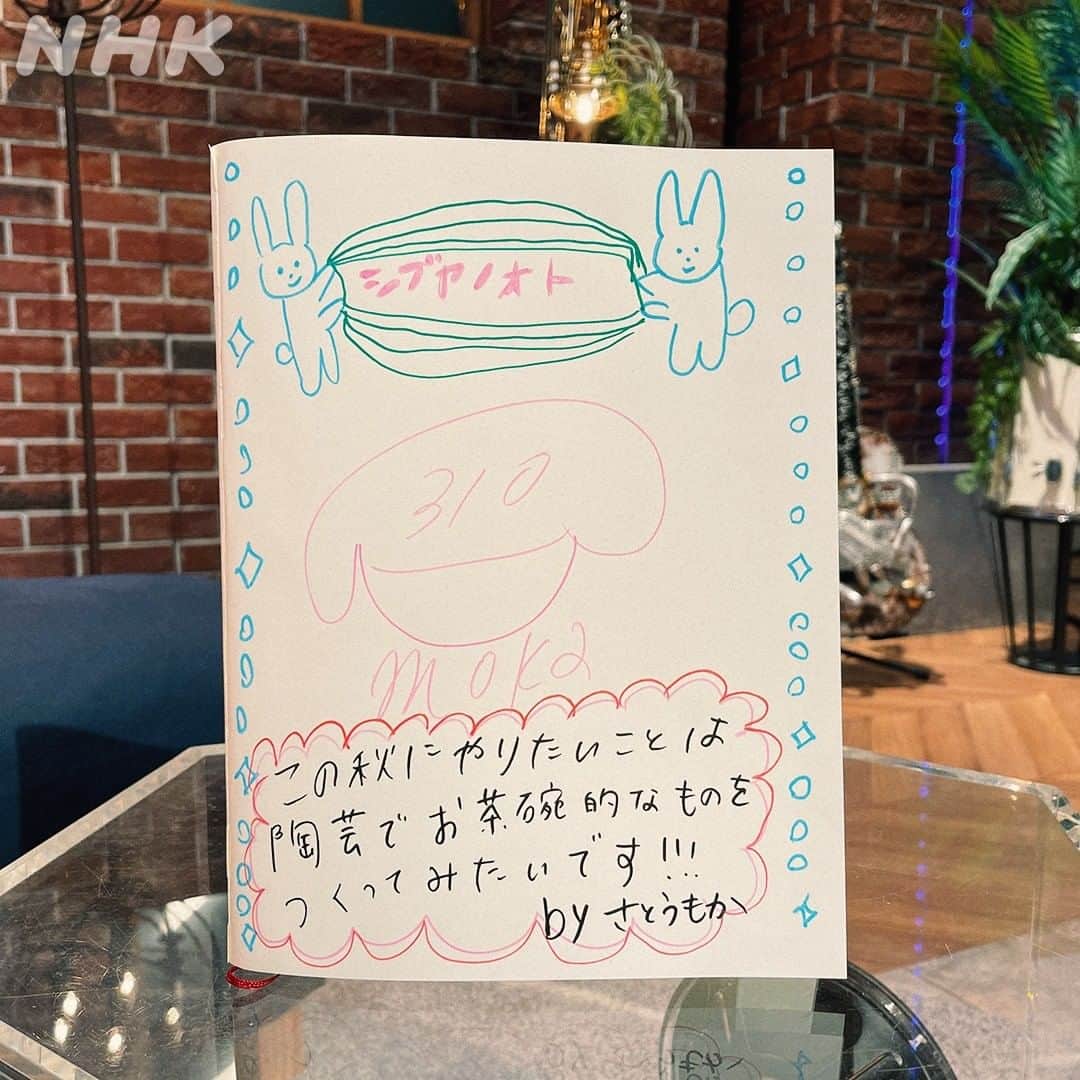 NHK
シブヤノオト
310
moka
この秋にやりたいことは
陶芸でお茶碗的なものを
つくってみたいです!!!
by さとうもか